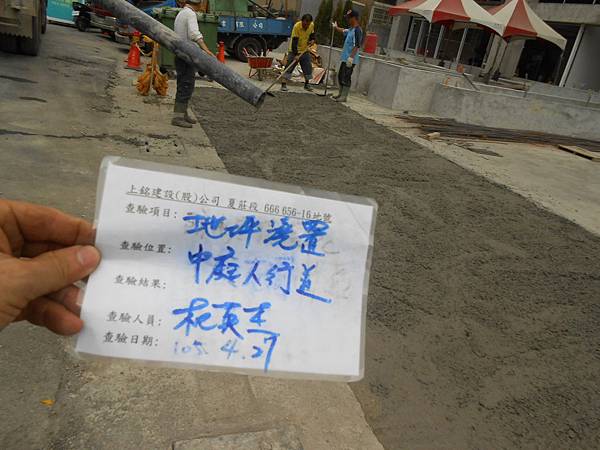 上銘建設(股)公司 夏莊段 666 656-16地號
查驗項目: 地坪澆置
查驗位置: 中庭人行道
查驗結果:
查驗人員:
查驗日期: 105. 4. 27